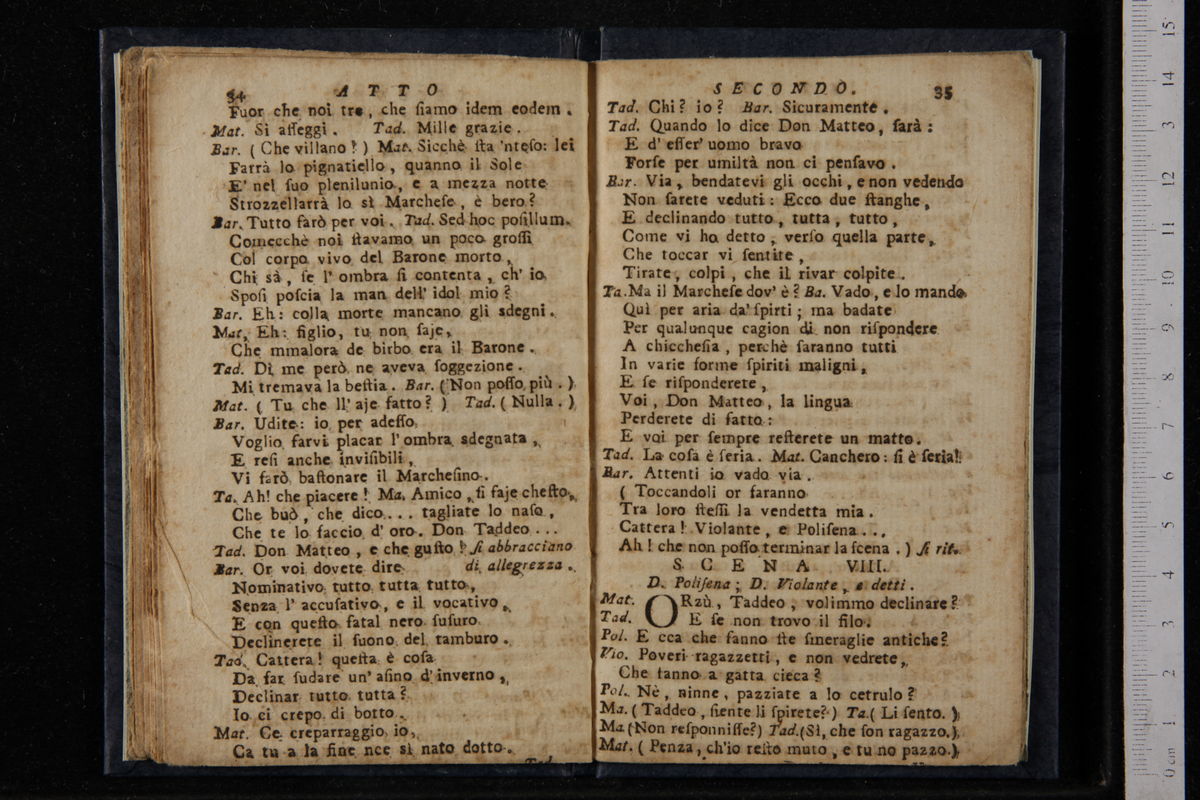 34 ATTO
Fuor che noi tre, che ſiamo idem eodem.
Mat. Si aſſeggi. Tad. Mille grazie.
Bar. (Che villano!) Mat. Sicchè ſta 'nteſo: lei
Farrà lo pignatiello, quanno il Sole
E' nel ſuo plenilunio, e a mezza notte
Strozzellarrà lo sì Marcheſe, è bero?
Bar. Tutto farò per voi. Tad. Sed hoc poſillum.
Comecchè noi ſtavamo un poco groſſi
Col corpo vivo del Barone morto,
Chi sà, ſe l' ombra ſi contenta, ch' io
Spoſi poſcia la man dell' idol mio?
Bar. Eh: colla morte mancano gli sdegni.
Mat. Eh: figlio, tu non ſaje,
Che mmalora de birbo era il Barone.
Tad. Di me però ne aveva ſoggezione.
Mi tremava la beſtia. Bar. (Non poſſo più.)
Mat. (Tu che ll' aje fatto?) Tad. (Nulla.)
Bar. Udite: io per adeſſo
Voglio farvi placar l' ombra sdegnata,
E reſi anche inviſibili,
Vi farò baſtonare il Marcheſino.
Ta. Ah! che piacere! Ma. Amico, ſi faje cheſto,
Che buò, che dico... tagliate lo naſo,
Che te lo faccio d' oro. Don Taddeo...
Tad. Don Matteo, e che guſto! ſi abbracciano
Bar. Or voi dovete dire di allegrezza.
Nominativo tutto tutta tutto,
Senza l' accuſativo, e il vocativo,
E con queſto fatal nero ſuſuro
Declinerete il ſuono del tamburo.
Tad. Cattera! queſta è coſa
Da far ſudare un' aſino d' inverno,
Declinar tutto tutta?
Io ci crepo di botto.
Mat. Ce creparraggio io,
Ca tu a la fine nce si nato dotto.
Tad.
SECONDÒ. 35
Tad. Chi? io? Bar. Sicuramente.
Tad. Quando lo dice Don Matteo, ſarà:
E d' eſſer' uomo bravo
Forſe per umiltà non ci penſavo.
Bar. Via, bendatevi gli occhi, e non vedendo
Non ſarete veduti: Ecco due ſtanghe,
E declinando tutto, tutta, tutto,
Come vi ho detto, verſo quella parte,
Che toccar vi ſentite,
Tirate, colpi, che il rivar colpite.
Ta. Ma il Marcheſe dov' è? Ba. Vado, e lo mando
Quì per aria da' ſpirti; ma badate
Per qualunque cagion di non riſpondere
A chiccheſia, perchè ſaranno tutti
In varie forme ſpiriti maligni,
E ſe riſponderete,
Voi, Don Matteo, la lingua
Perderete di fatto:
E voi per ſempre reſterete un matto.
Tad. La coſa è ſeria. Mat. Canchero: ſi è ſeria!
Bar. Attenti io vado via.
(Toccandoli or faranno
Tra loro ſteſſi la vendetta mia.
Cattera! Violante, e Poliſena...
Ah! che non poſſo terminar la ſcena.) ſi rit.
SCENA VIII.
D. Poliſena; D. Violante, e detti.
Mat. ORzù, Taddeo, volimmo declinare?
Tad. E ſe non trovo il filo.
Pol. E cca che fanno ſte ſmeraglie antiche?
Vio. Poveri ragazzetti, e non vedrete,
Che fanno a gatta cieca?
Pol. Nè, ninne, pazziate a lo cetrulo?
Ma. (Taddeo, ſiente li ſpirete?) Ta. (Li ſento.)
Ma (Non reſponniſſe?) Tad. (Sì, che ſon ragazzo.)
Mat. (Penza, ch'io reſto muto, e tu no pazzo.)